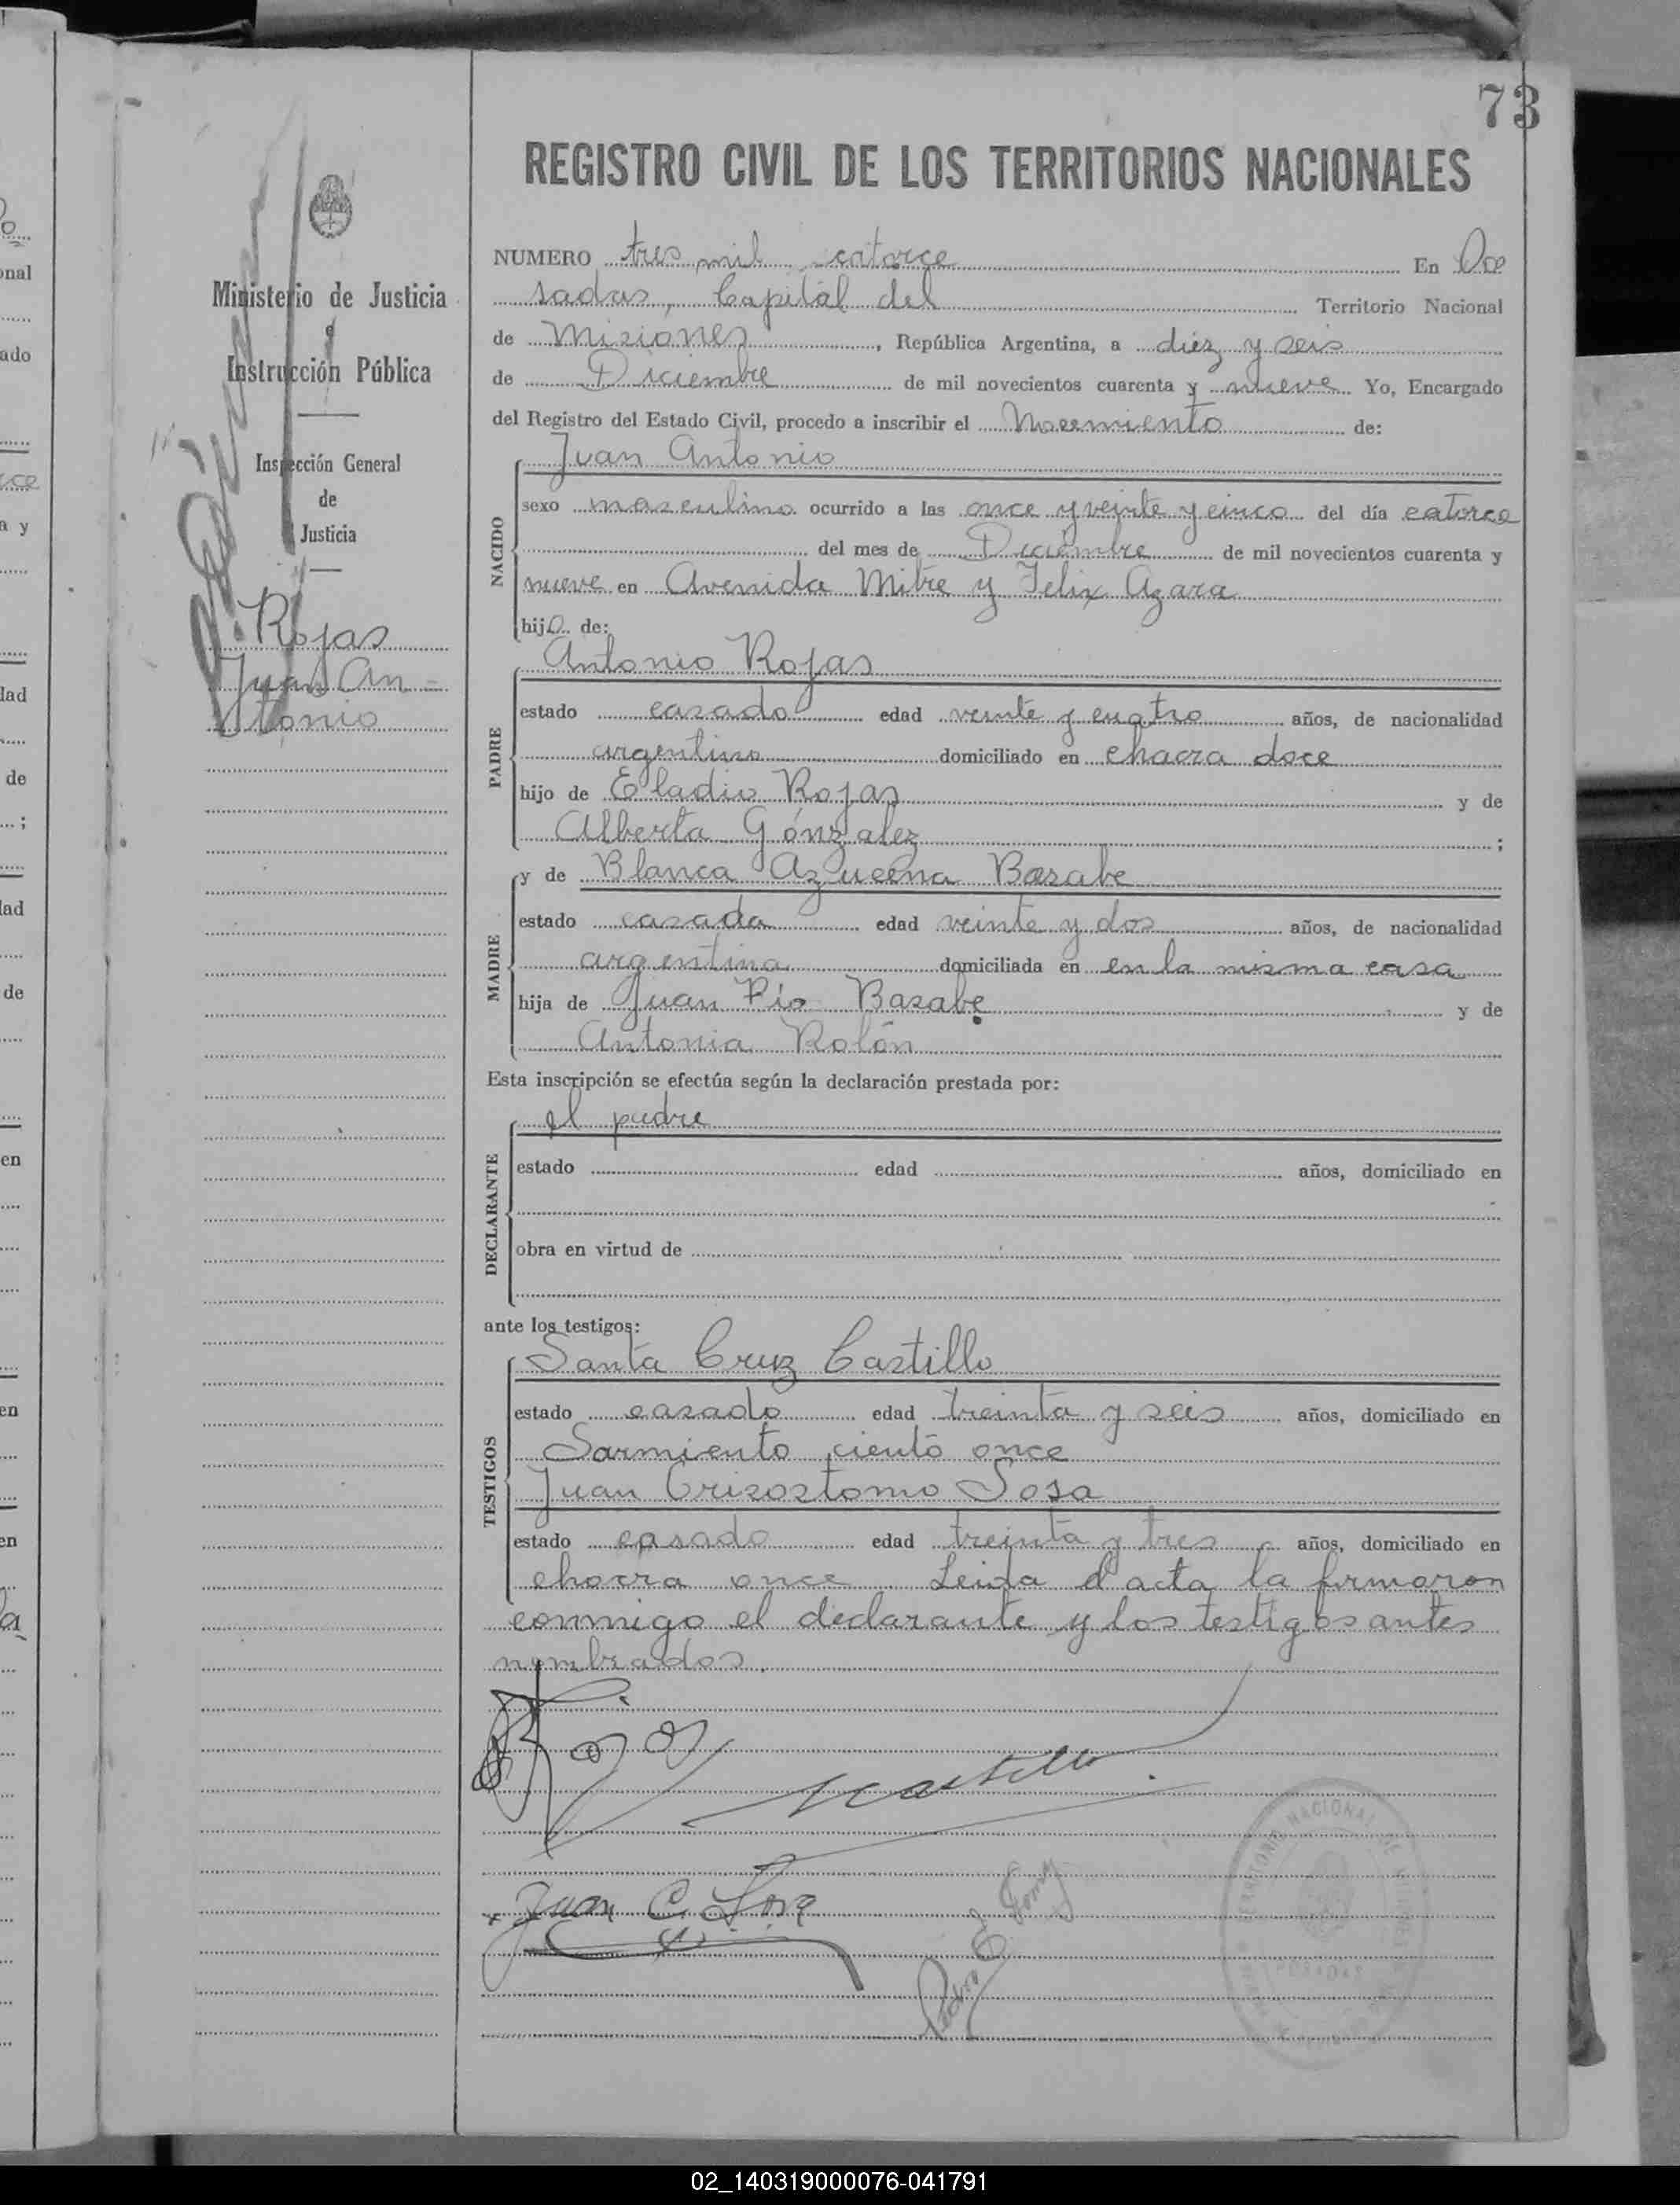 73
REGISTRO CIVIL DE LOS TERRITORIOS NACIONALES
Ministerio de Justicia
e
Instrucción Pública
Inspección General
de
Justicia
Rojas
Juan An-
tonio
NUMERO tres mil catorce En Po
sadas, Capital del Territorio Nacional
de Misiones, República Argentina, a diez y seis
de Diciembre de mil novecientos cuarenta y nueve Yo, Encargado
del Registro del Estado Civil, procedo a inscribir el Nacemiento de:
Juan Antonio
NACIDO
sexo masculino ocurrido a las once y veinte y cinco del día catorce
del mes de Diciembre de mil novecientos cuarenta y
nueve en Avenida Mitre y Felix Azara
hijo de:
Antonio Rojas
PADRE
estado casado edad veinte y cuatro años, de nacionalidad
argentino domiciliado en chacra doce
hijo de Eladio Rojas y de
Alberta Gónzalez ;
y de Blanca Azucena Basabe
MADRE
estado casada edad veinte y dos años, de nacionalidad
argentina domiciliada en en la misma casa
hija de Juan Pío Basabe y de
Antonia Rolón
Esta inscripción se efectúa según la declaración prestada por:
el padre
DECLARANTE
estado edad años, domiciliado en
obra en virtud de
ante los testigos:
Santa Cruz Castillo
TESTIGOS
estado casado edad treinta y seis años, domiciliado en
Sarmiento ciento once
Juan Crisostomo Sosa
estado casado edad treinta y tres años, domiciliado en
chacra once Leida el acta la firmaron
conmigo el declarante y los testigos antes
nombrados.
Castillo
Juan C. Sosa
Pedro E
TERRITORIO NACIONAL DE MISIONES
POSADAS
02_140319000076-041791